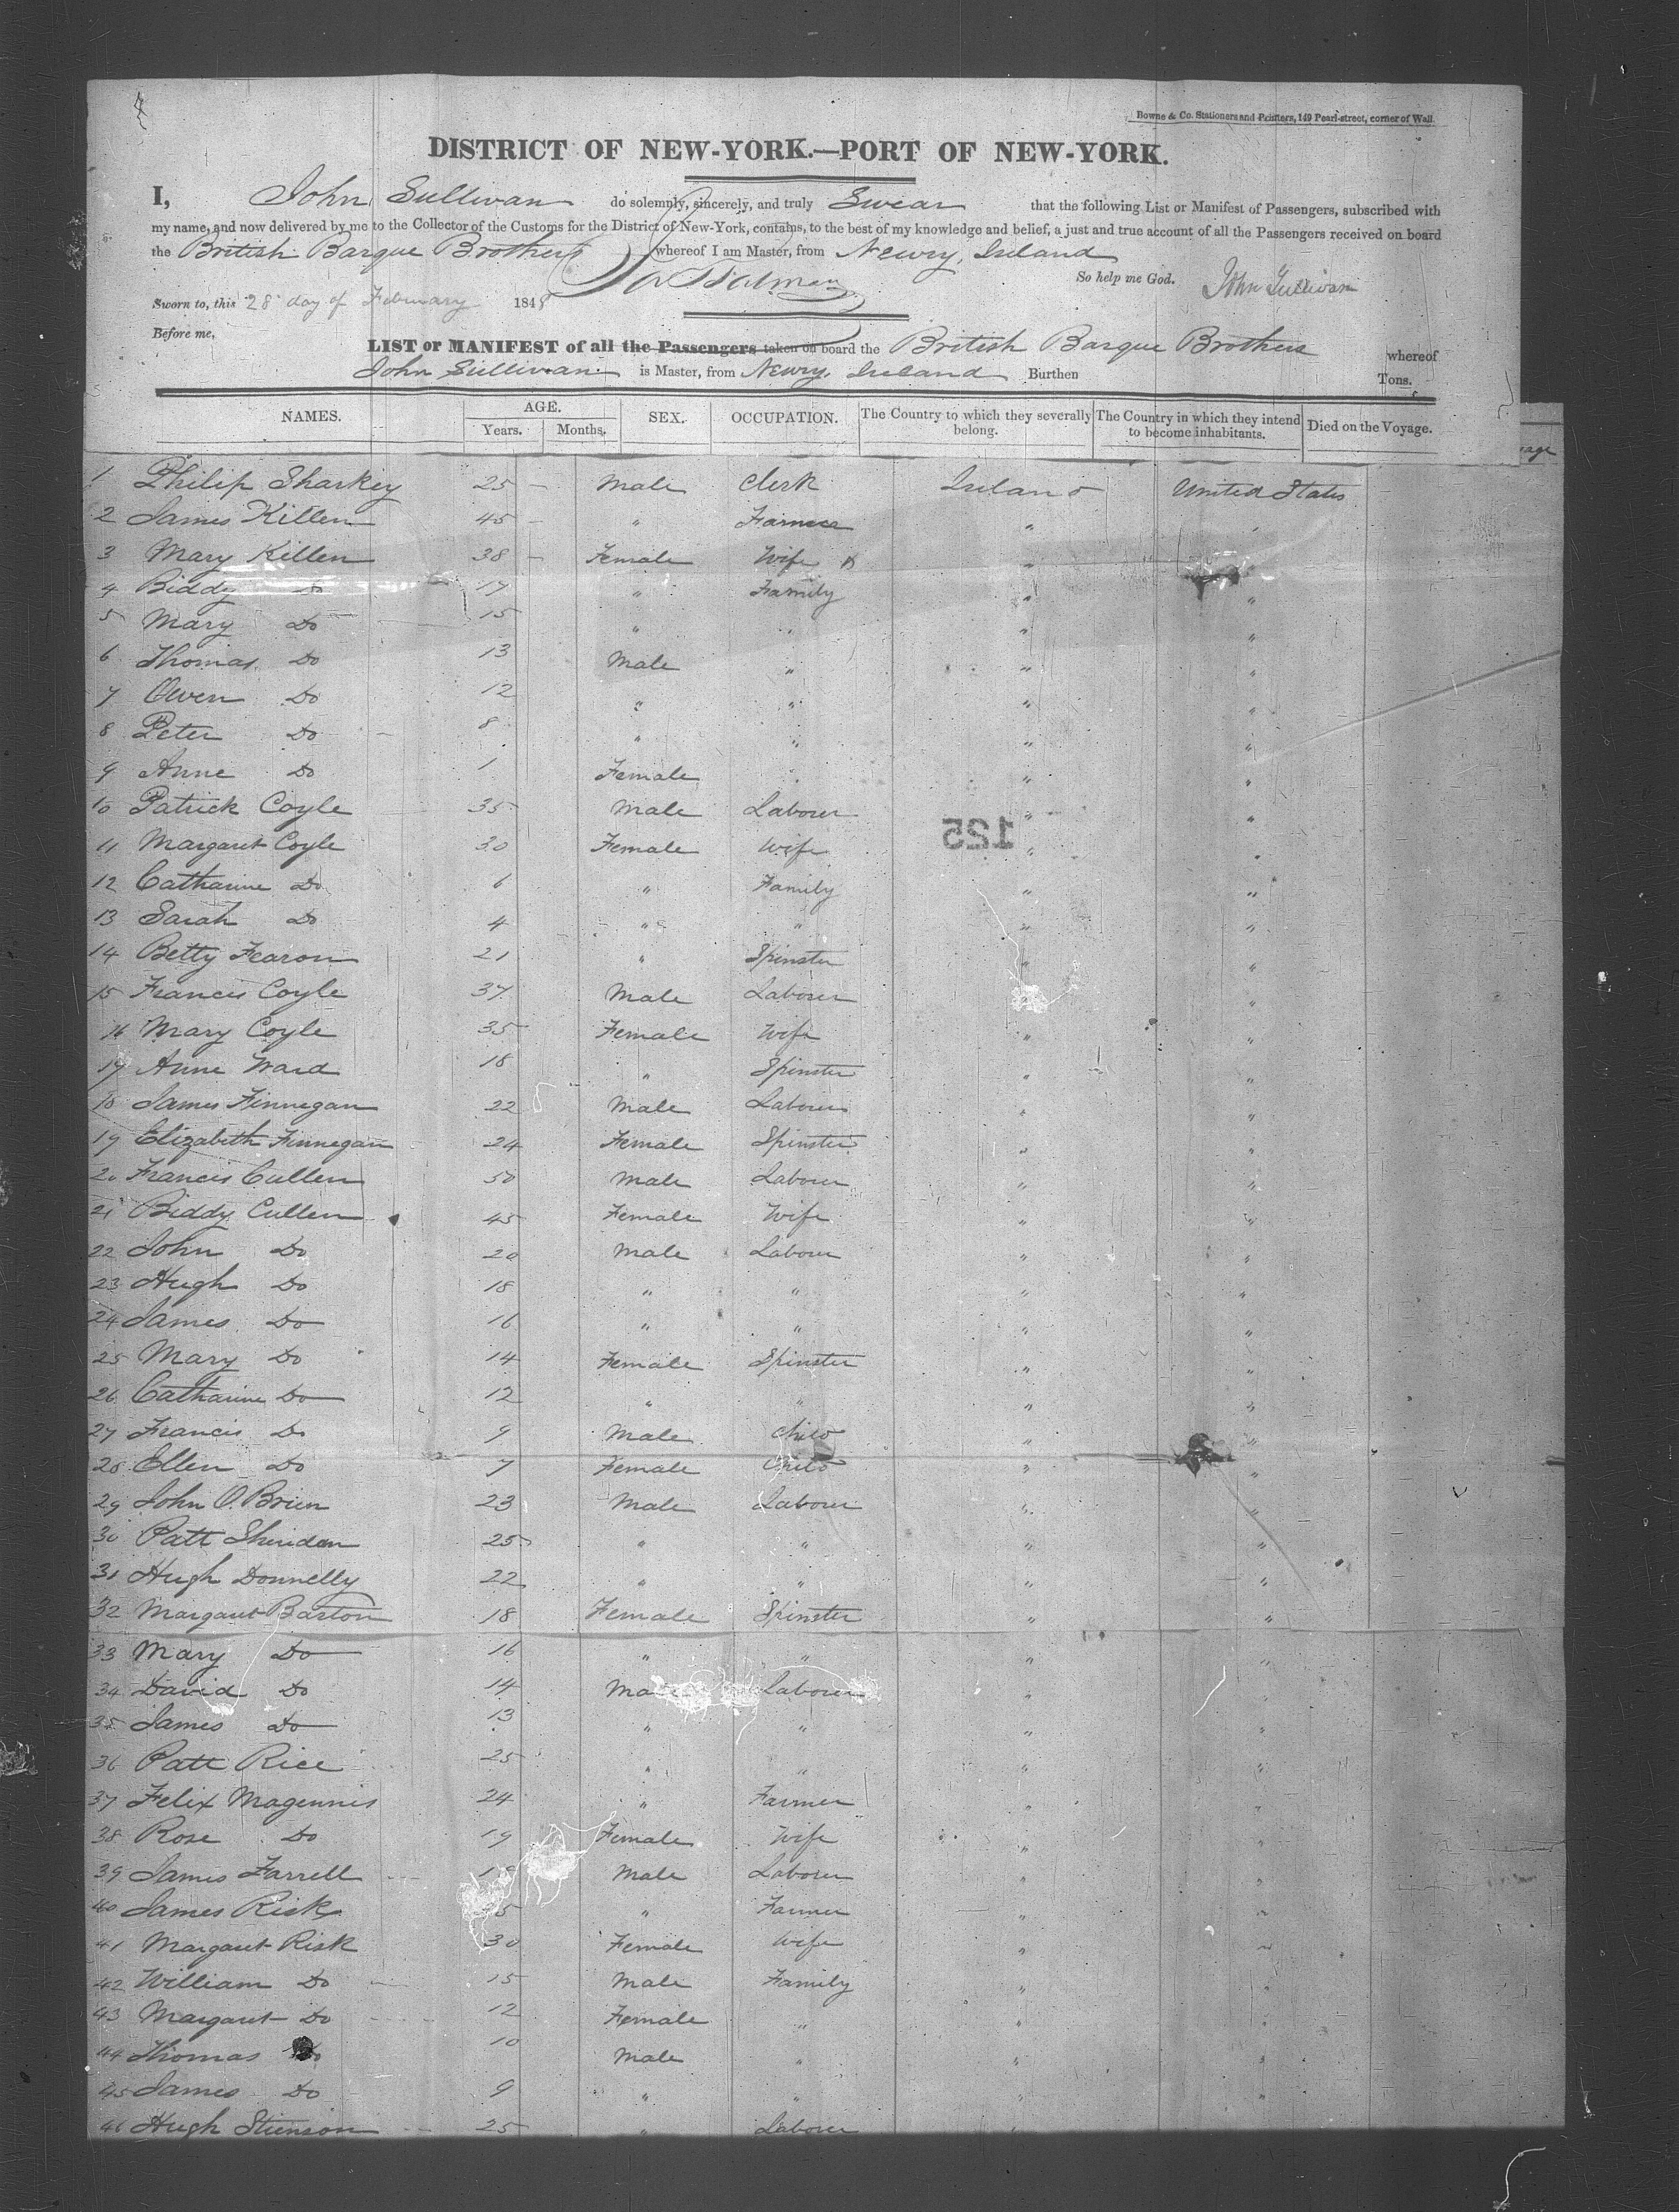 Bowne & Co. Stationers and Printers, 149 Pearl-street, corner of Wall.
DISTRICT OF NEW-YORK.—PORT OF NEW-YORK.
I, John Sullivan do solemnly, sincerely, and truly Swear that the following List or Manifest of Passengers, subscribed with
my name, and now delivered by me to the Collector of the Customs for the District of New-York, contains, to the best of my knowledge and belief, a just and true account of all the Passengers received on board
the British Barque Brothers whereof I am Master, from Newry, Ireland
So help me God. John Sullivan
Sworn to, this 28 day of February 1848
Before me,
LIST or MANIFEST of all the Passengers taken on board the British Barque Brothers whereof
John Sullivan is Master, from Newry, Ireland Burthen Tons.
NAMES. AGE. Years. Months. SEX. OCCUPATION. The Country to which they severally belong. The Country in which they intend to become inhabitants. Died on the Voyage.
1 Philip Sharkey 25 - Male Clerk Ireland United States
2 James Killen 45 - " Farmer " "
3 Mary Killen 38 - Female Wife "
4 Biddy Do 17 " Family " "
5 Mary Do 15 " " " "
6 Thomas Do 13 Male " " "
7 Owen Do 12 " " " "
8 Peter Do 8 " " " "
9 Anne Do 1 Female " " "
10 Patrick Coyle 35 Male Laborer " "
125
11 Margaret Coyle 30 Female Wife " "
12 Catharine Do 6 " Family " "
13 Sarah Do 4 " " " "
14 Betty Fearon 21 " Spinster " "
15 Francis Coyle 37 Male Laborer " "
16 Mary Coyle 35 Female Wife " "
17 Anne Ward 18 " Spinster " "
18 James Finnegan 22 Male Laborer " "
19 Elizabeth Finnegan 24 Female Spinster " "
20 Francis Cullen 50 Male Labourer " "
21 Biddy Cullen 45 Female Wife " "
22 John Do 20 Male Labourer " "
23 Hugh Do 18 " " " "
24 James Do 16 " " " "
25 Mary Do 14 Female Spinster " "
26 Catharine Do 12 " " " "
27 Francis Do 9 Male Child " "
28 Ellen Do 7 Female Child " "
29 John O.Brien 23 Male Labourer " "
30 Patt Sheridan 25 " " " "
31 Hugh Donnelly 22 " " " "
32 Margaret Barton 18 Female Spinster " "
33 Mary Do 16 " " " "
34 David Do 14 Male Laborer " "
35 James Do 13 " " " "
36 Patt Rice 25 " " " "
37 Felix Magennis 24 " Farmer " "
38 Rose Do 19 Female Wife " "
39 James Farrell Male Laborer " "
40 James Risk " Farmer " "
41 Margaret Risk 30 Female Wife " "
42 William Do 15 Male Family " "
43 Margaret Do 12 Female " " "
44 Thomas Do 10 Male " " "
45 James Do 9 " " " "
46 Hugh Stinson 25 " Laborer " "